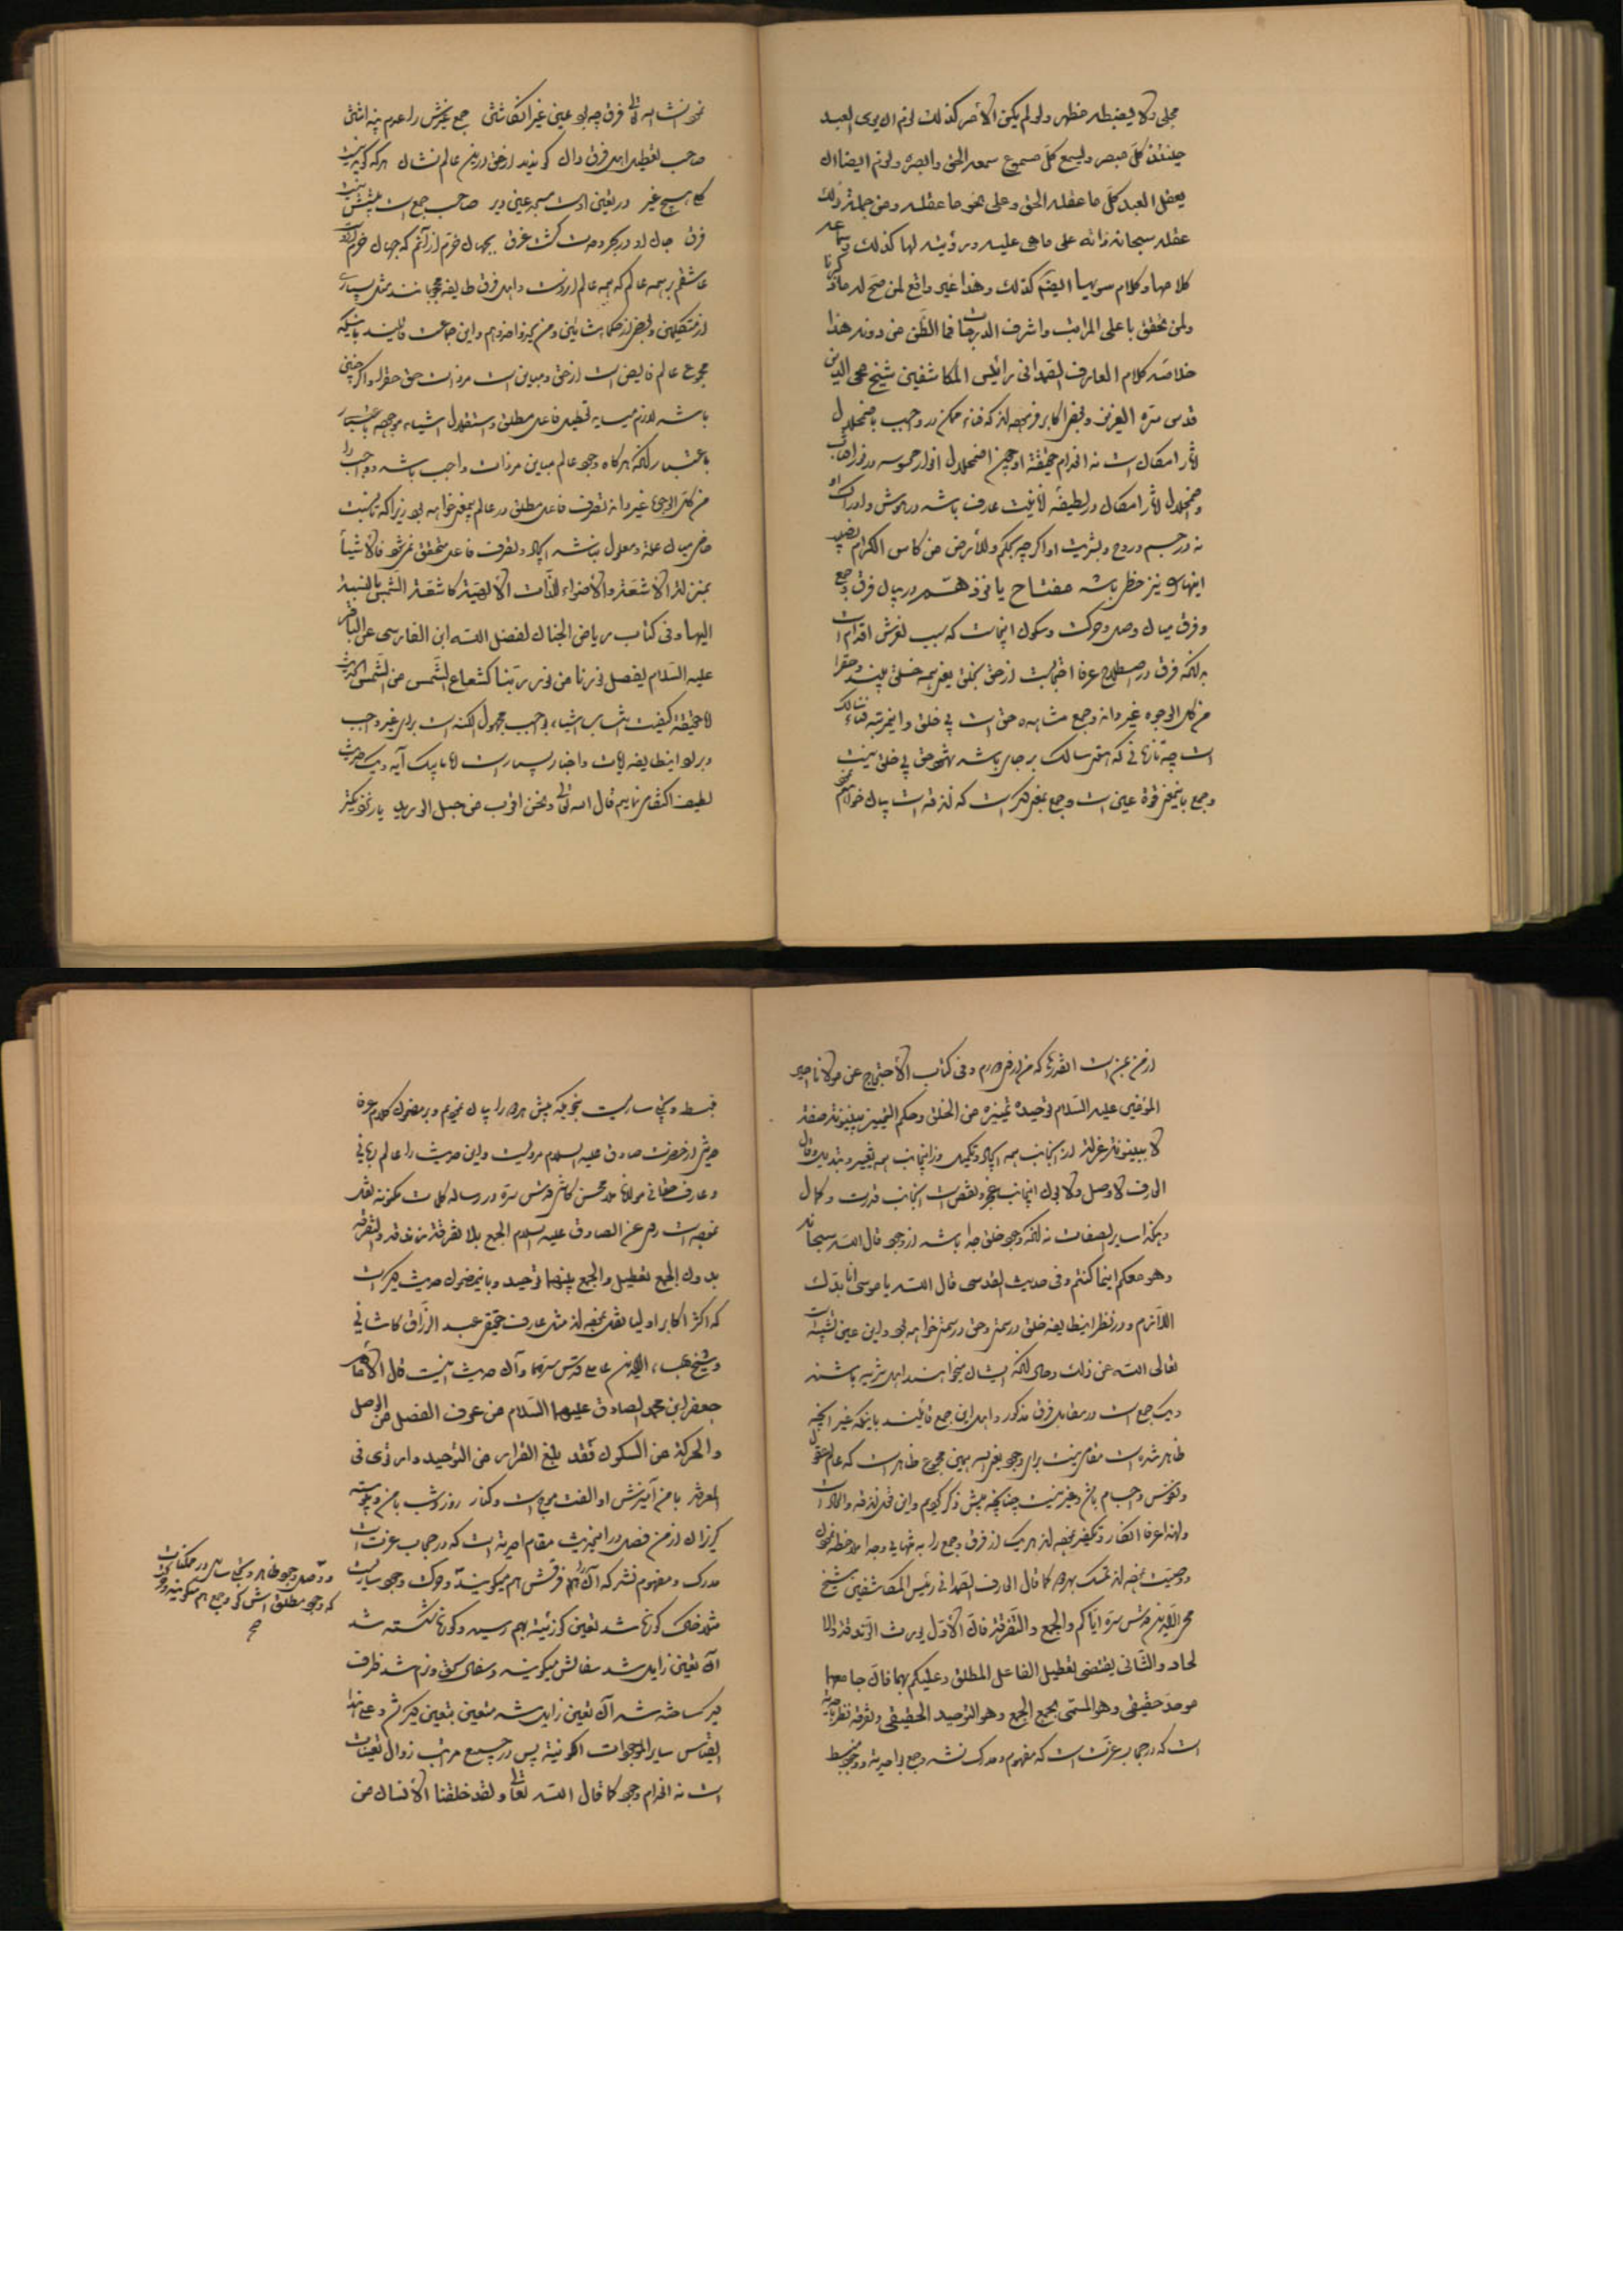 مجلی ولا یضبطه مظهر ولو لم یکن الأمر کذلک لزم ان یری العبد
حینئذ کلّ مبصر ویسمع کلّ مسموع سمعه الحق وابصره ولزم ایضا ان
یعقل العبد کلّ ما عقله الحق وعلی نحو ما عقله ومن جملة ذلک
عقله سبحانه ذاته علی ما هی علیه ورؤیته لها کذلک وسماعه
کلامها وکلام سویها ایضا کذلک وهذا غیر واقع لمن صح له ما ذکرنا
ولمن تحقق باعلی المراتب واشرف الدرجات فما الظنّ من دونه هذا
خلاصه کلام العارف الصمدانی رائیس المکاشفین شیخ محی الدین
قدس سرّه العزیز وبعضی اکابر فرموده‌اند که فناء ممکن در واجب باضمحلال
آثار امکان است نه انعدام حقیقة او چون اضمحلال انوار محسوسه در نور آفتاب
واضمحلال آثار امکان در لطیفهٔ انانیت عارف باشد در هوش وادراک او
نه در جسم وروح وبشریت او اگر چه بحکم وللأرض من کأس الکرام نصیب
اینها را نیز حظی باشد مفتاح یا من ذهّم در بیان فرق وجمع
وفرق میان وصل وحرکت وسکون اینجاست که سبب لغزش اقدام است
بدانکه فرق در اصطلاح عرفا احتجابست از حق بخلق یعنی همه خلق بیند وحق را
من کل الوجوه غیر داند وجمع مشاهده حق است بی خلق واینمرتبه فناء سالک
است چه تا زمانی که هستی سالک بر جای باشد شهود حق بی خلق نیست
وجمع باینمعنی قوة عین است وجمع بمعنی دیگر است که زندقه است بیان خواهم
نمود انشاءالله تعالی فرق چه بود عین غیر انگاشتن جمع غیرش را عدم پنداشتن
صاحب تعطیل اهل فرق دان کو ندید از حق درین عالم نشان هر که گوید نیست
کلی هیچ غیر در یقین اوست مسجد عین دیر صاحب جمع است پیشش نیست
فرق جان او در بحر وحدت گشت غرق بجهان خرّم از آنم که جهان خرّم ازوست
عاشقم بر همه عالم که همه عالم ازوست واهل فرق طایفه محجوبانند مثل بسیاری
از متکلمین وبعضی از حکماء مشائین ومن یحذو حذوهم واین جماعت قائلند باینکه
مجموع عالم فایض است از حق ومباین است مر ذات حق حق را واگر چنین
باشد لازم میاید تعطیل فاعل مطلق واستقلال اشیاء موجوده باعتبار
باعتبار آنکه هرگاه وجود عالم مباین مر ذات واجب باشد وواجب را
من کل الوجوه غیر داند تصرف فاعل مطلق در عالم بیمعنی خواهد بود زیرا که تا نسبت
خاص میان علة ومعلول نباشد ایجاد وتصرف فاعل متحقق نمیشود فالاشیاء
بمنزلة الأشعّة والأضواء للذّات الألهیّة کاشعّة الشّمس بالنسبة
الیها وفی کتاب ریاض الجنان لفضل الله ابن الفارسی عن الباقر
علیه السّلام یفصل نورنا من نور ربّنا کشعاع الشّمس من الشّمس الحدیث
امّا حقیقة کیفیت انتساب اشیاء بواجب مجهول الکنه است برای غیر واجب
وبرای اینطایفه آیات واخبار بسیار است اما بیک آیه ویک حدیث
لطیف اکتفا می‌نماییم قال الله تعالی ونحن اقرب من حبل الورید یار نزدیکتر
از من بمن است اینقدر ها که من از وی دورم وفی کتاب الأحتجاج عن مولانا امیر
المؤمنین علیه السّلام توحیده تمییزه من الخلق وحکم التمییز بینونة صفة
لا بینونة عزلة از آنجانب همه ایجاد وتکمیل وزاینجانب همه تغییر وتبدیل وقال
العارف لا وصل ولا بون اینجانب عجز ونقص است آنجانب قدرت وکمال
وهکذا سایر الصفات نه آنکه وجود خلق جدا باشد از وجود قال الله سبحانه
وهو معکم اینما کنتم وفی حدیث القدسی قال الله یا موسی انا بدّک
اللّازم ودر نظر اینطایفه خلق در سمتی وحق در سمتی خواهد بود واین عین تشبیه است
تعالی الله عن ذلک وحال آنکه ایشان میخواهند اهل تنزیه باشند
ودیگر جمع است در مقابل فرق مذکور واهل این جمع قائلند باینکه غیر آنچه
ظاهر شده است مقامی نیست برای وجود یعنی الله همین مجموع ظاهر است که عالم عقول
ونفوس واجسام باشد وغیر نیست چنانچه پیش ذکر کردیم واین محل زندقه والحاد است
ولهذا عرفا انکار وتکفیر نموده‌اند هر یک از فرق وجمع را به تنهایی وجدا ملاحظه نمودن
ووصیت نموده‌اند تمسک بهردو کما قال العارف الصمدانی رئیس المکاشفین شیخ
محی الدین قدس سرّه ایّاکم والجمع والتّفرقة فانّ الأوّل یورث الزّندقة والا
لحاد والثّانی یقتضی تعطیل الفاعل المطلق وعلیکم بهما فانّ جامعهما
موحدّ حقیقی وهو المسمّی بجمع الجمع وهو التوحید الحقیقی وتفرقه نظر باحدیّة
است که در حجاب عزّت است که مفهوم ومدرک نشد وجمع با احدیة وجود منبسط
منبسط وتجلّی ساریست بنحویکه پیش هردو را بیان نمودیم وبر مضمون کلام عرفا
حدیثی از حضرت صادق علیه السلام مرویست واین حدیث را عالم ربانی
وعارف حقانی مولانا ملا محسن کاشی قدس سرّه در رساله کلمات مکنونه نقل
نموده است روی عن الصادق علیه السلام الجمع بلا تفرقة زندقه والتفرقه
بدون الجمع تعطیل والجمع بینهما توحید وباینمضمون حدیث دیگر است
که اکثر اکابر اولیا نقل نموده‌اند مثل عارف حقیقی عبد الرّزاق کاشانی
وشیخ بهاء الدین عاملی قدّس سرّهما وآن حدیث اینست قال الأمام
جعفر ابن محمد الصادق علیهما السّلام من عرف الفصل من الوصل
والحرکة من السکون فقد بلغ القرار من التوحید وار وی فی
المعرفة با من آمیزش او الفت موج است وکنار روز وشب با من وپیوسته
گریزان از من فصل در اینحدیث مقام احدیة است که در حجاب عزت است
مدرک ومفهوم نشد که آن را هم فرقش هم میگویند وحرکت وجود ساریست
مثلا خاک کوزه شد تعین کوزئیة بهم رسید وکوزه شکسته شد
آن تعین زایل شد سفالش میگویند وسفال سحق ونرم شد ظرف
دیگر ساخته شد آن تعین زایل شد متعین بتعین دیگر شد وعلی هذا
القیاس سایر الموجودات الکونیة پس در جمیع مراتب زوال تعینات
است نه انعدام وجود کما قال الله تعالی ولقد خلقنا الأنسان من
ووصل وجود ظاهر وتجلی ساری در ممکنات
که وجود مطلق اش گویند وجمع هم میگویند
صح